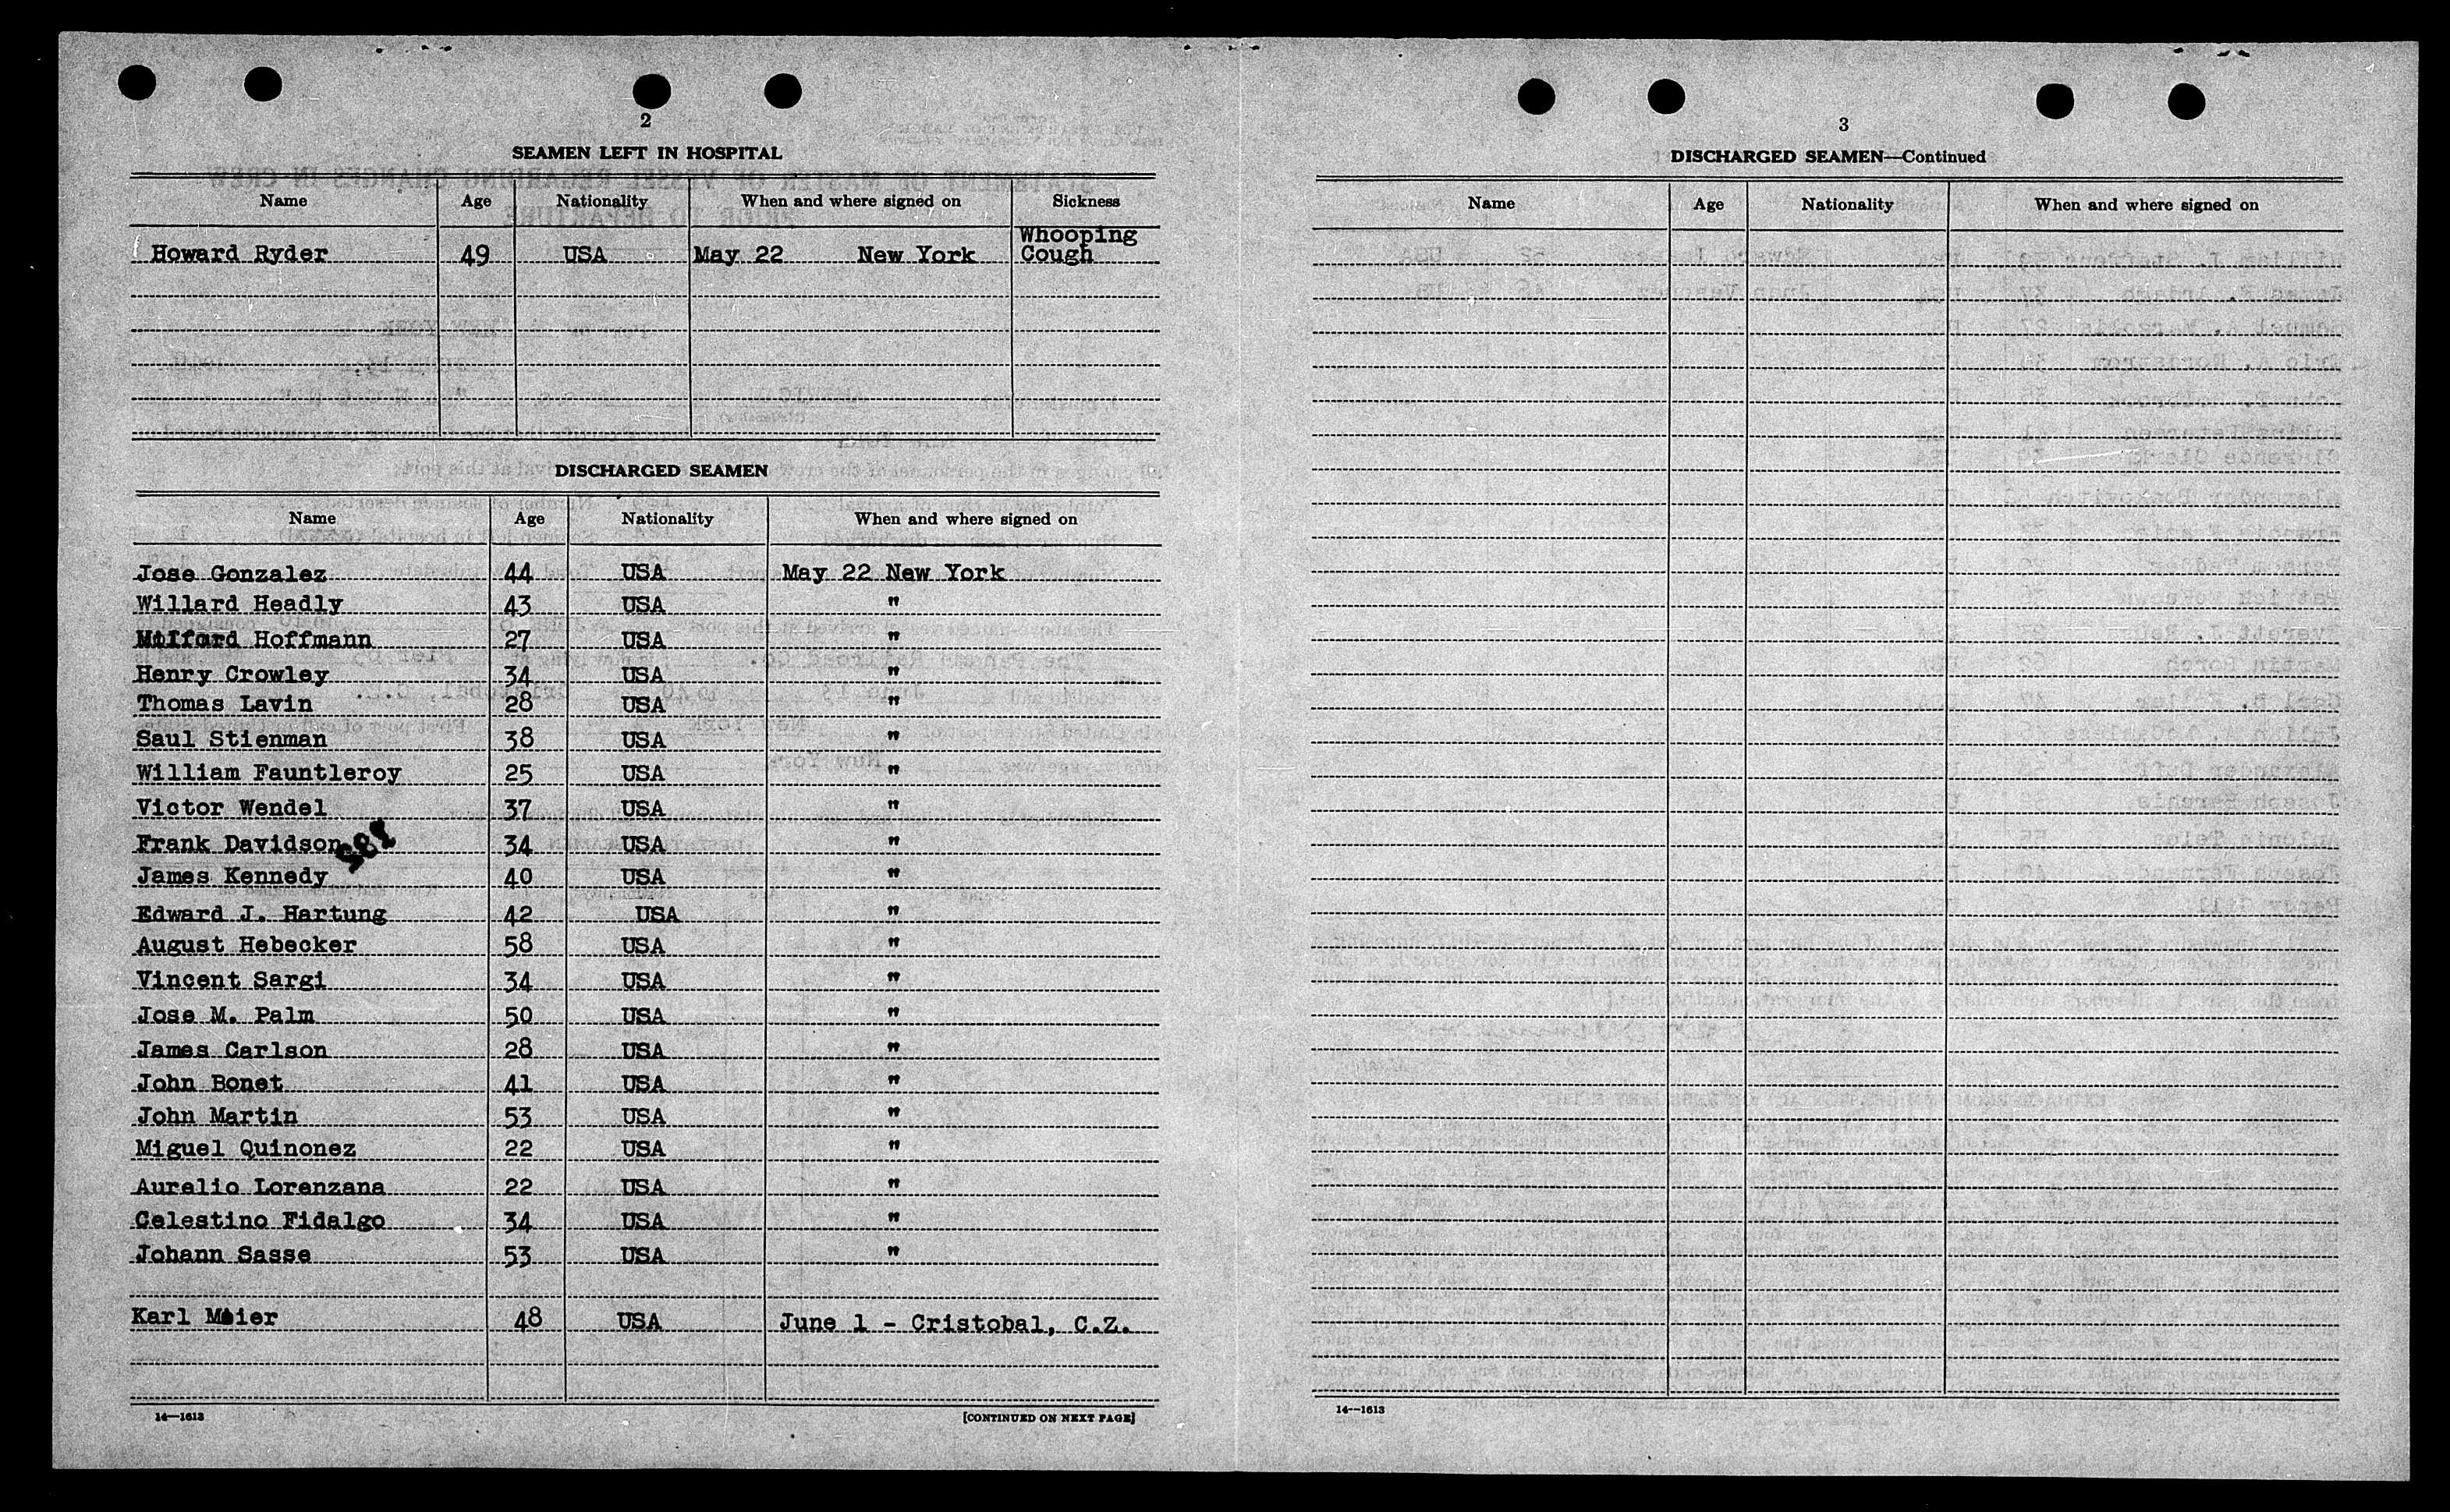 2
SEAMEN LEFT IN HOSPITAL
Name Age Nationality When and where signed on Sickness
Howard Ryder 49 USA May 22 New York Whooping Cough
DISCHARGED SEAMEN
Name Age Nationality When and where signed on
Jose Gonzalez 44 USA May 22 New York
Willard Headly 43 USA "
Milford Hoffmann 27 USA "
Henry Crowley 34 USA "
Thomas Lavin 28 USA "
Saul Stienman 38 USA "
William Fauntleroy 25 USA "
Victor Wendel 37 USA "
Frank Davidson 34 USA "
James Kennedy 40 USA "
Edward J. Hartung 42 USA "
August Hebecker 58 USA "
Vincent Sargi 34 USA "
Jose M. Palm 50 USA "
James Carlson 28 USA "
John Bonet 41 USA "
John Martin 53 USA "
Miguel Quinonez 22 USA "
Aurelio Lorenzana 22 USA "
Celestino Fidalgo 34 USA "
Johann Sasse 53 USA "
Karl Meier 48 USA June 1 - Cristobal, C.Z.
14—1613 [CONTINUED ON NEXT PAGE]
3
DISCHARGED SEAMEN—Continued
Name Age Nationality When and where signed on
14—1613